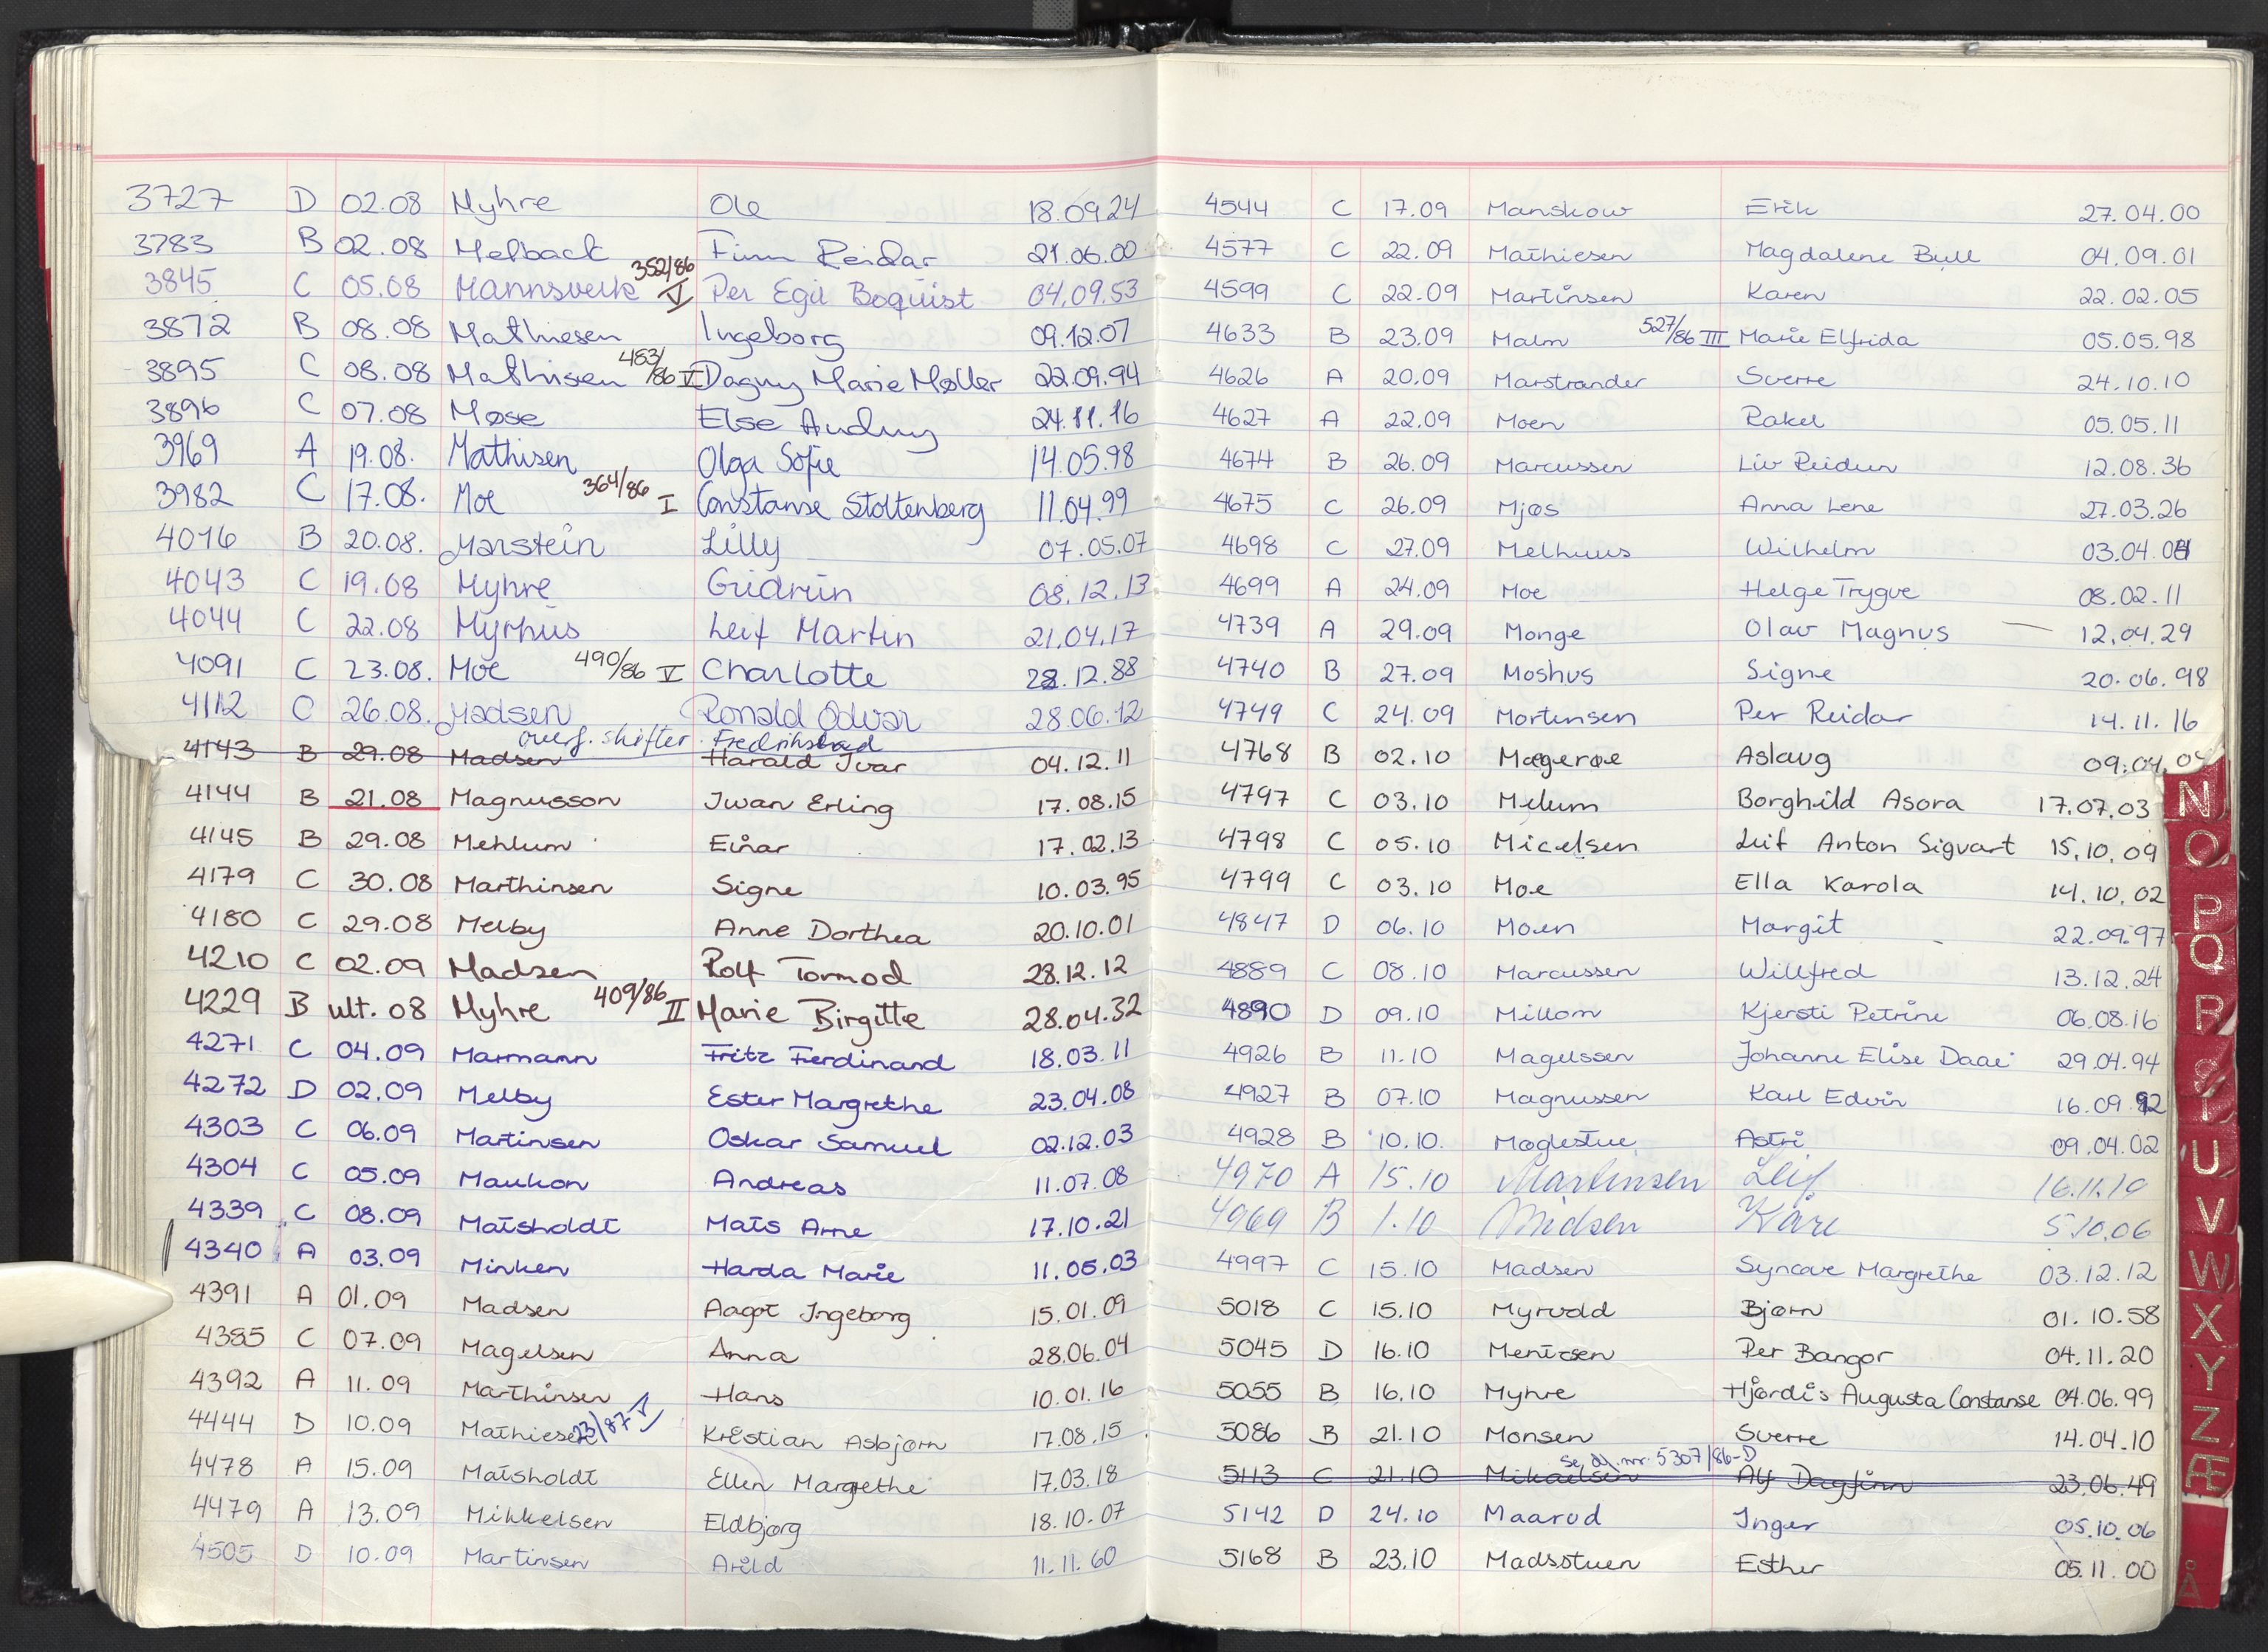 3727 D 02.08 Myhre Ole 18.09.24
3783 B 02.08 Melback Finn Reidar 21.06.00
3845 C 05.08 Mannsverk 352/86 V Per Egil Boquist 04.09.53
3872 B 08.08 Mathiesen Ingeborg 09.12.07
3895 C 08.08 Mathisen 483/86 V Dagny Marie Møller 22.09.94
3896 C 07.08 Møse Else Audny 24.11.16
3969 A 19.08. Mathisen Olga Sofie 14.05.98
3982 C 17.08. Moe 364/86 I Constanse Stoltenberg 11.04.99
4016 B 20.08. Marstein Lilly 07.05.07
4043 C 19.08 Myhre Gudrun 08.12.13
4044 C 22.08 Myrhus Leif Martin 21.04.17
4091 C 23.08. Moe 490/86 V Charlotte 28.12.88
4112 C 26.08. Madsen Ronald Odvar 28.06.12
overf. skifter. Fredrikstad
4143 B 29.08 Madsen Harald Ivar 04.12.11
4144 B 21.08 Magnusson Iwan Erling 17.08.15
4145 B 29.08 Mehlum Einar 17.02.13
4179 C 30.08 Marthinsen Signe 10.03.95
4180 C 29.08 Melby Anne Dorthea 20.10.01
4210 C 02.09 Madsen Rolf Tormod 28.12.12
4229 B ult. 08 Myhre 409/86 II Marie Birgitte 28.04.32
4271 C 04.09 Marmann Fritz Ferdinand 18.03.11
4272 D 02.09 Melby Ester Margrethe 23.04.08
4303 C 06.09 Martinsen Oskar Samuel 02.12.03
4304 C 05.09 Maukon Andreas 11.07.08
4339 C 08.09 Matsholdt Mats Arne 17.10.21
4340 A 03.09 Minken Harda Marie 11.05.03
4391 A 01.09 Madsen Aagot Ingeborg 15.01.09
4385 C 07.09 Magelsen Anna 28.06.04
4392 A 11.09 Marthinsen Hans 10.01.16
4444 D 10.09 Mathiesen 23/87 V Kristian Asbjørn 17.08.15
4478 A 15.09 Matsholdt Ellen Margrethe 17.03.18
4479 A 13.09 Mikkelsen Eldbjørg 18.10.07
4505 D 10.09 Martinsen Arild 11.11.60
4544 C 17.09 Manskow Erik 27.04.00
4577 C 22.09 Mathiesen Magdalene Bull 04.09.01
4599 C 22.09 Martinsen Karen 22.02.05
4633 B 23.09 Malm 527/86 III Marie Elfrida 05.05.98
4626 A 20.09 Marstrander Sverre 24.10.10
4627 A 22.09 Moen Rakel 05.05.11
4674 B 26.09 Marcussen Liv Reidun 12.08.36
4675 C 26.09 Mjøs Anna Lene 27.03.26
4698 C 27.09 Melhuus Wilhelm 03.04.
4699 A 24.09 Moe Helge Trygve 08.02.11
4739 A 29.09 Monge Olav Magnus 12.04.29
4740 B 27.09 Moshus Signe 20.06.98
4749 C 24.09 Mortensen Per Reidar 14.11.16
4768 B 02.10 Magerøe Aslaug 09.04.04
4797 C 03.10 Melum Borghild Asora 17.07.03
4798 C 05.10 Micelsen Leif Anton Sigvart 15.10.09
4799 C 03.10 Moe Ella Karola 14.10.02
4847 D 06.10 Moen Margit 22.09.97
4889 C 08.10 Marcussen Willfred 13.12.24
4890 D 09.10 Millom Kjersti Petrine 06.08.16
4926 B 11.10 Magelssen Johanne Elise Daae 29.04.94
4927 B 07.10 Magnussen Karl Edvin 16.09.
4928 B 10.10. Møglestue Astri 09.04.02
4970 A 15.10 Martinsen Leif 16.11.19
4969 B 1.10 Midsen Kåre 5.10.06
4997 C 15.10 Madsen Synøve Margrethe 03.12.12
5018 C 15.10 Myrvold Bjørn 01.10.58
5045 D 16.10 Mentzen Per Bangor 04.11.20
5055 B 16.10 Myhre Hjørdis Augusta Constanse 04.06.99
5086 B 21.10 Monsen Sverre 14.04.10
se dj.nr. 5307/86-D
5113 C 21.10 Mikaelsen Alf Dagfinn 23.06.49
5142 D 24.10 Maarud Inger 05.10.06
5168 B 23.10 Madsstuen Esther 05.11.00
N
O
P
Q
R
S
T
U
V
W
X
Y
Z
Æ
Å